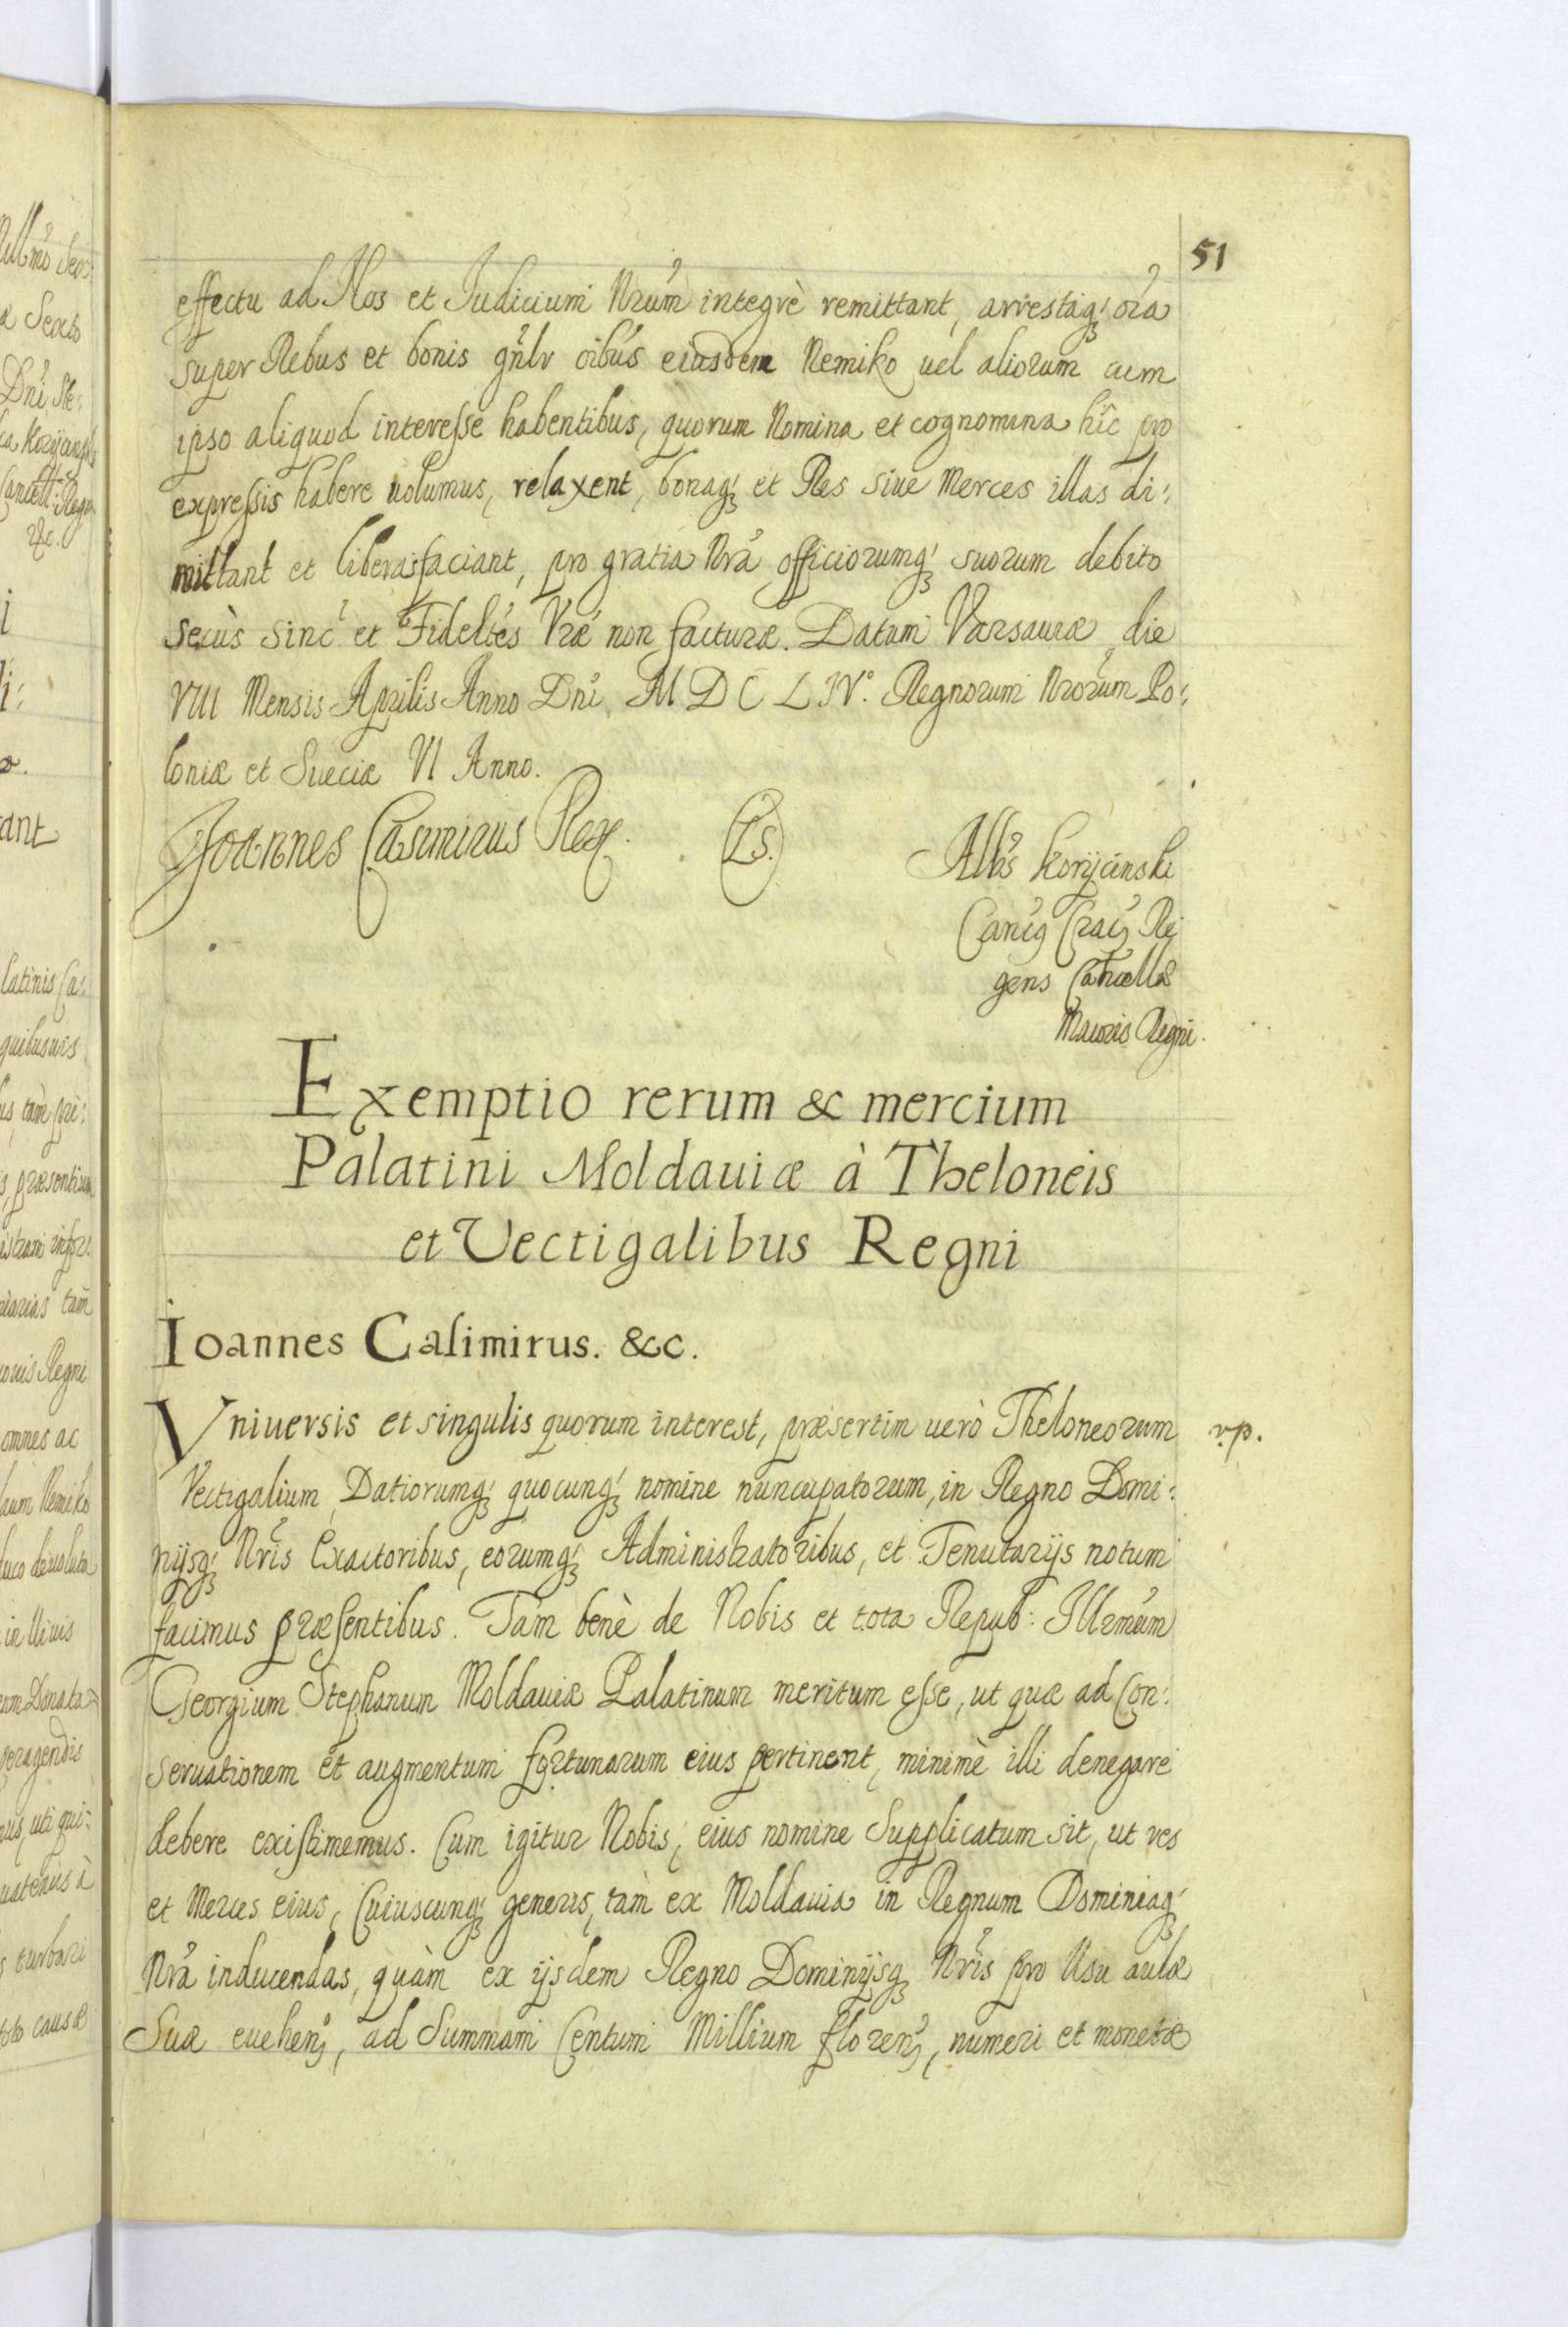 51
effectu ad Nos et Iudicium Nrum integrè remittant, arrestaq; oia
super Rebus et bonis gñlr oibus eiusdem Nemiko uel aliorum cum
ipso aliquod interesse habentibus, quorum Nomina et cognomina hîc pro
expressis habere uolumus, relaxent, bonaq; et Res siue Merces illas di:
mittant et liberas faciant, pro gratia Nrâ officiorumq; suorum debito
secùs Sinc: et Fideltes Vræ non facturæ. Datum Varsauiæ die
VIII Mensis Aprilis Anno Dni M D C L IV.° Regnorum Nrorum Po:
loniæ et Sueciæ VI Anno.
Joannes Casimirus Rex. L.s. Albs Korijcinski
Canus Craus Re
gens Cancellæ
Maioris Regni.
Exemptio rerum & mercium
Palatini Moldauiæ à Theloneis
et Vectigalibus Regni
Ioannes Casimirus. &c.
Vniuersis et singulis quorum interest, præsertim uerò Theloneorum vp.
Vectigalium Datiorumq; quocunq; nomine nuncupatorum, in Regno Domi:
nijsq; Nris Exactoribus, eorumq; Administratoribus, et Tenutarijs notum
facimus præsentibus. Tam benè de Nobis et tota Repub: Illrmum
Georgium Stephanum Moldauiæ Palatinum meritum esse, ut quæ ad Con:
seruationem et augmentum fortunarum eius pertinent, minimè illi denegare
debere existimemus. Cum igitur Nobis, eius nomine Supplicatum sit, ut res
et Merces eius, Cuiuscunq; generis, tàm ex Moldauia in Regnum Dominiaq;
Nrâ inducendas, quàm ex ijsdem Regno Dominijsq; Nris pro Usu aulæ
Suæ euehen;, ad Summam Centum Millium floren;, numeri et monetæ